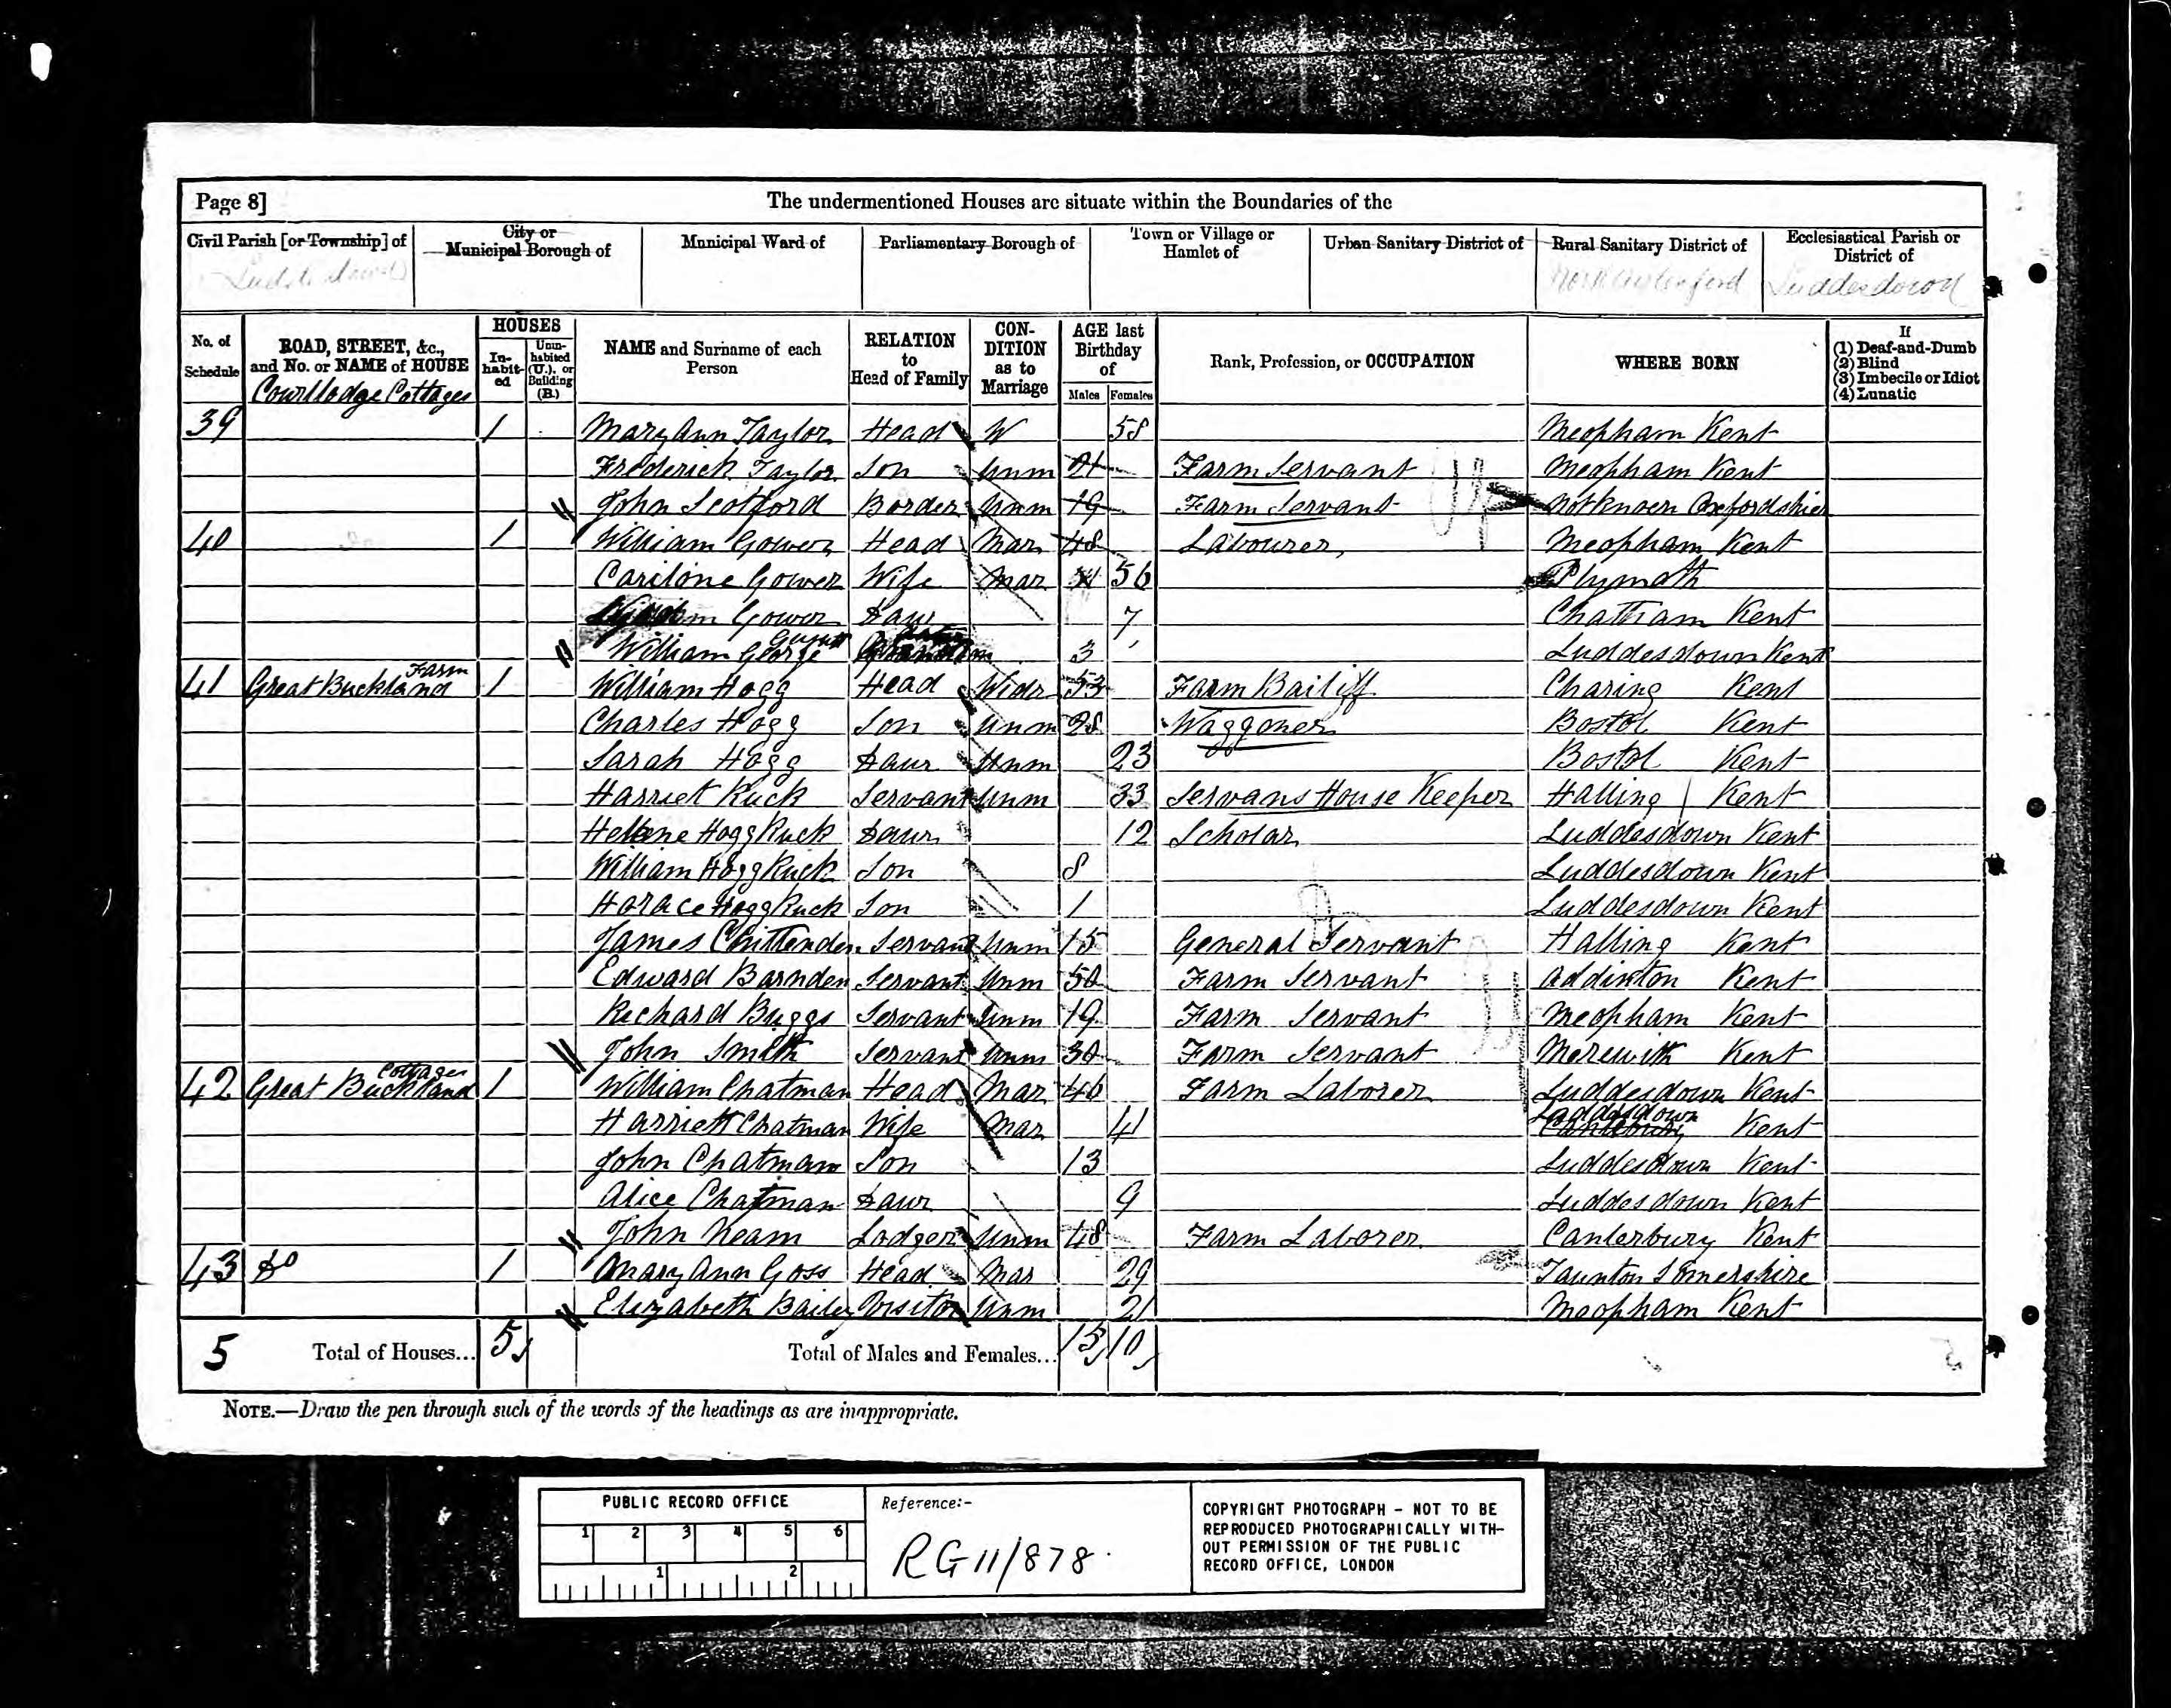 Page 8]
The undermentioned Houses are situate within the Boundaries of the
Civil Parish [or Township] of
City or Municipal Borough of
Municipal Ward of
Parliamentary Borough of
Town or Village or Hamlet of
Urban Sanitary District of
Rural Sanitary District of
Ecclesiastical Parish or District of
Luddesdown
No. of Schedule
ROAD, STREET, &c., and No. or NAME of HOUSE
HOUSES
In-habit-ed
Unin-habited (U.), or Building (B.)
NAME and Surname of each Person
RELATION to Head of Family
CON-DITION as to Marriage
AGE last Birthday of
Males
Females
Rank, Profession, or OCCUPATION
WHERE BORN
If
(1) Deaf-and-Dumb
(2) Blind
(3) Imbecile or Idiot
(4) Lunatic
Courtlodge Cottages
39 1 Mary Ann Taylor Head W 58 Meopham Kent
Frederick Taylor Son Unm 21 Farm Servant Meopham Kent
John Scotford Border Unm 19 Farm Servant
40 1 William Gower Head Mar 48 Labourer Meopham Kent
Gower Wife Mar 56 Plymoth
Gower Daur 7 Chatham Kent
William George 3 Luddesdown Kent
41 Great Buckland Farm 1 William Hogg Head Widr 53 Farm Bailiff Charing Kent
Charles Hogg Son Unm 28 Waggoner Bostol Kent
Sarah Hogg Daur Unm 23 Bostol Kent
Harriet Ruck Servant Unm 33 Servans House Keeper Halling Kent
Hogg Ruck Daur 12 Scholar Luddesdown Kent
William Hogg Ruck Son 8 Luddesdown Kent
Horace Hogg Ruck Son 1 Luddesdown Kent
James Chittenden Servant Unm 15 General Servant Halling Kent
Edward Barnden Servant Unm 50 Farm Servant Addinton Kent
Richard Buggs Servant Unm 19 Farm Servant Meopham Kent
John Smith Servant Unm 30 Farm Servant Merewith Kent
42 Great Buckland Cottages 1 William Chatman Head Mar 46 Farm Laborer Luddesdown Kent
Harriett Chatman Wife Mar 41 Luddesdown Kent
John Chatman Son 13 Luddesdown Kent
Alice Chatman Daur 9 Luddesdown Kent
John Neam Lodger Unm 48 Farm Laborer Canterbury Kent
43 Do 1 Mary Ann Goss Head Mar 29 Taunton Somershire
Elizabeth Bailey Visitor Unm 21 Meopham Kent
5 Total of Houses... 5
Total of Males and Females... 15 10
NOTE.—Draw the pen through such of the words of the headings as are inappropriate.
PUBLIC RECORD OFFICE
1 2 3 4 5 6
1 2
Reference:-
RG 11/878
COPYRIGHT PHOTOGRAPH - NOT TO BE
REPRODUCED PHOTOGRAPHICALLY WITH-
OUT PERMISSION OF THE PUBLIC
RECORD OFFICE, LONDON